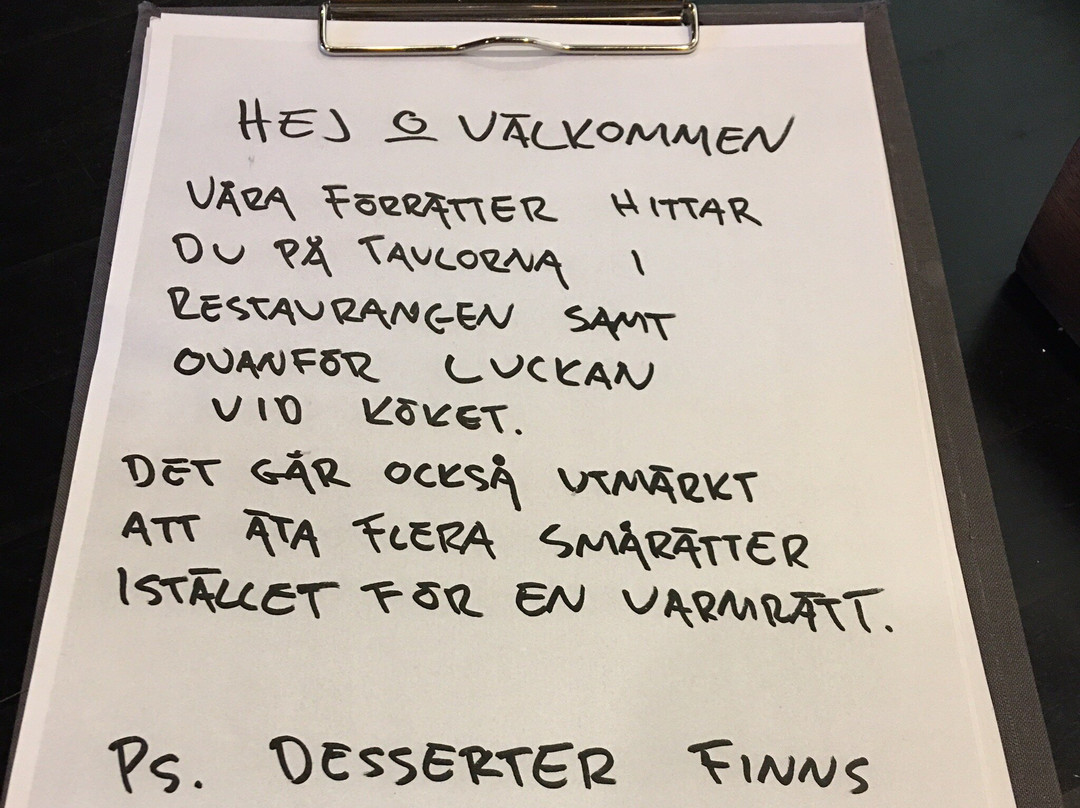 HEJ O VÄLKOMMEN
VÅRA FÖRRÄTTER HITTAR
DU PÅ TAVLORNA I
RESTAURANGEN SAMT
OVANFÖR LUCKAN
VID KÖKET.
DET GÅR OCKSÅ UTMÄRKT
ATT ÄTA FLERA SMÅRÄTTER
ISTÄLLET FÖR EN VARMRÄTT.
PS. DESSERTER FINNS